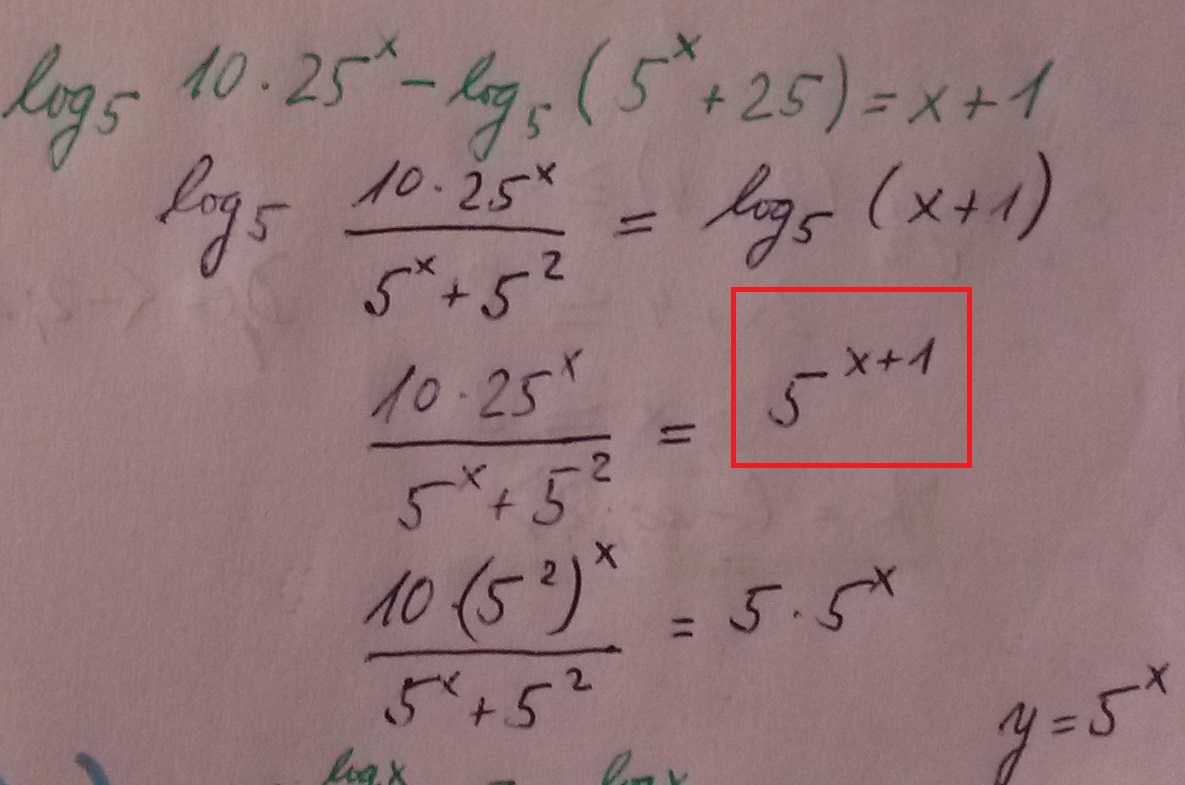 log₅ 10·25ˣ - log₅ (5ˣ + 25) = x + 1
log₅ (10·25ˣ)/(5ˣ + 5²) = log₅ (x+1)
(10·25ˣ)/(5ˣ + 5²) = 5ˣ⁺¹
(10·(5²)ˣ)/(5ˣ + 5²) = 5·5ˣ
y = 5ˣ